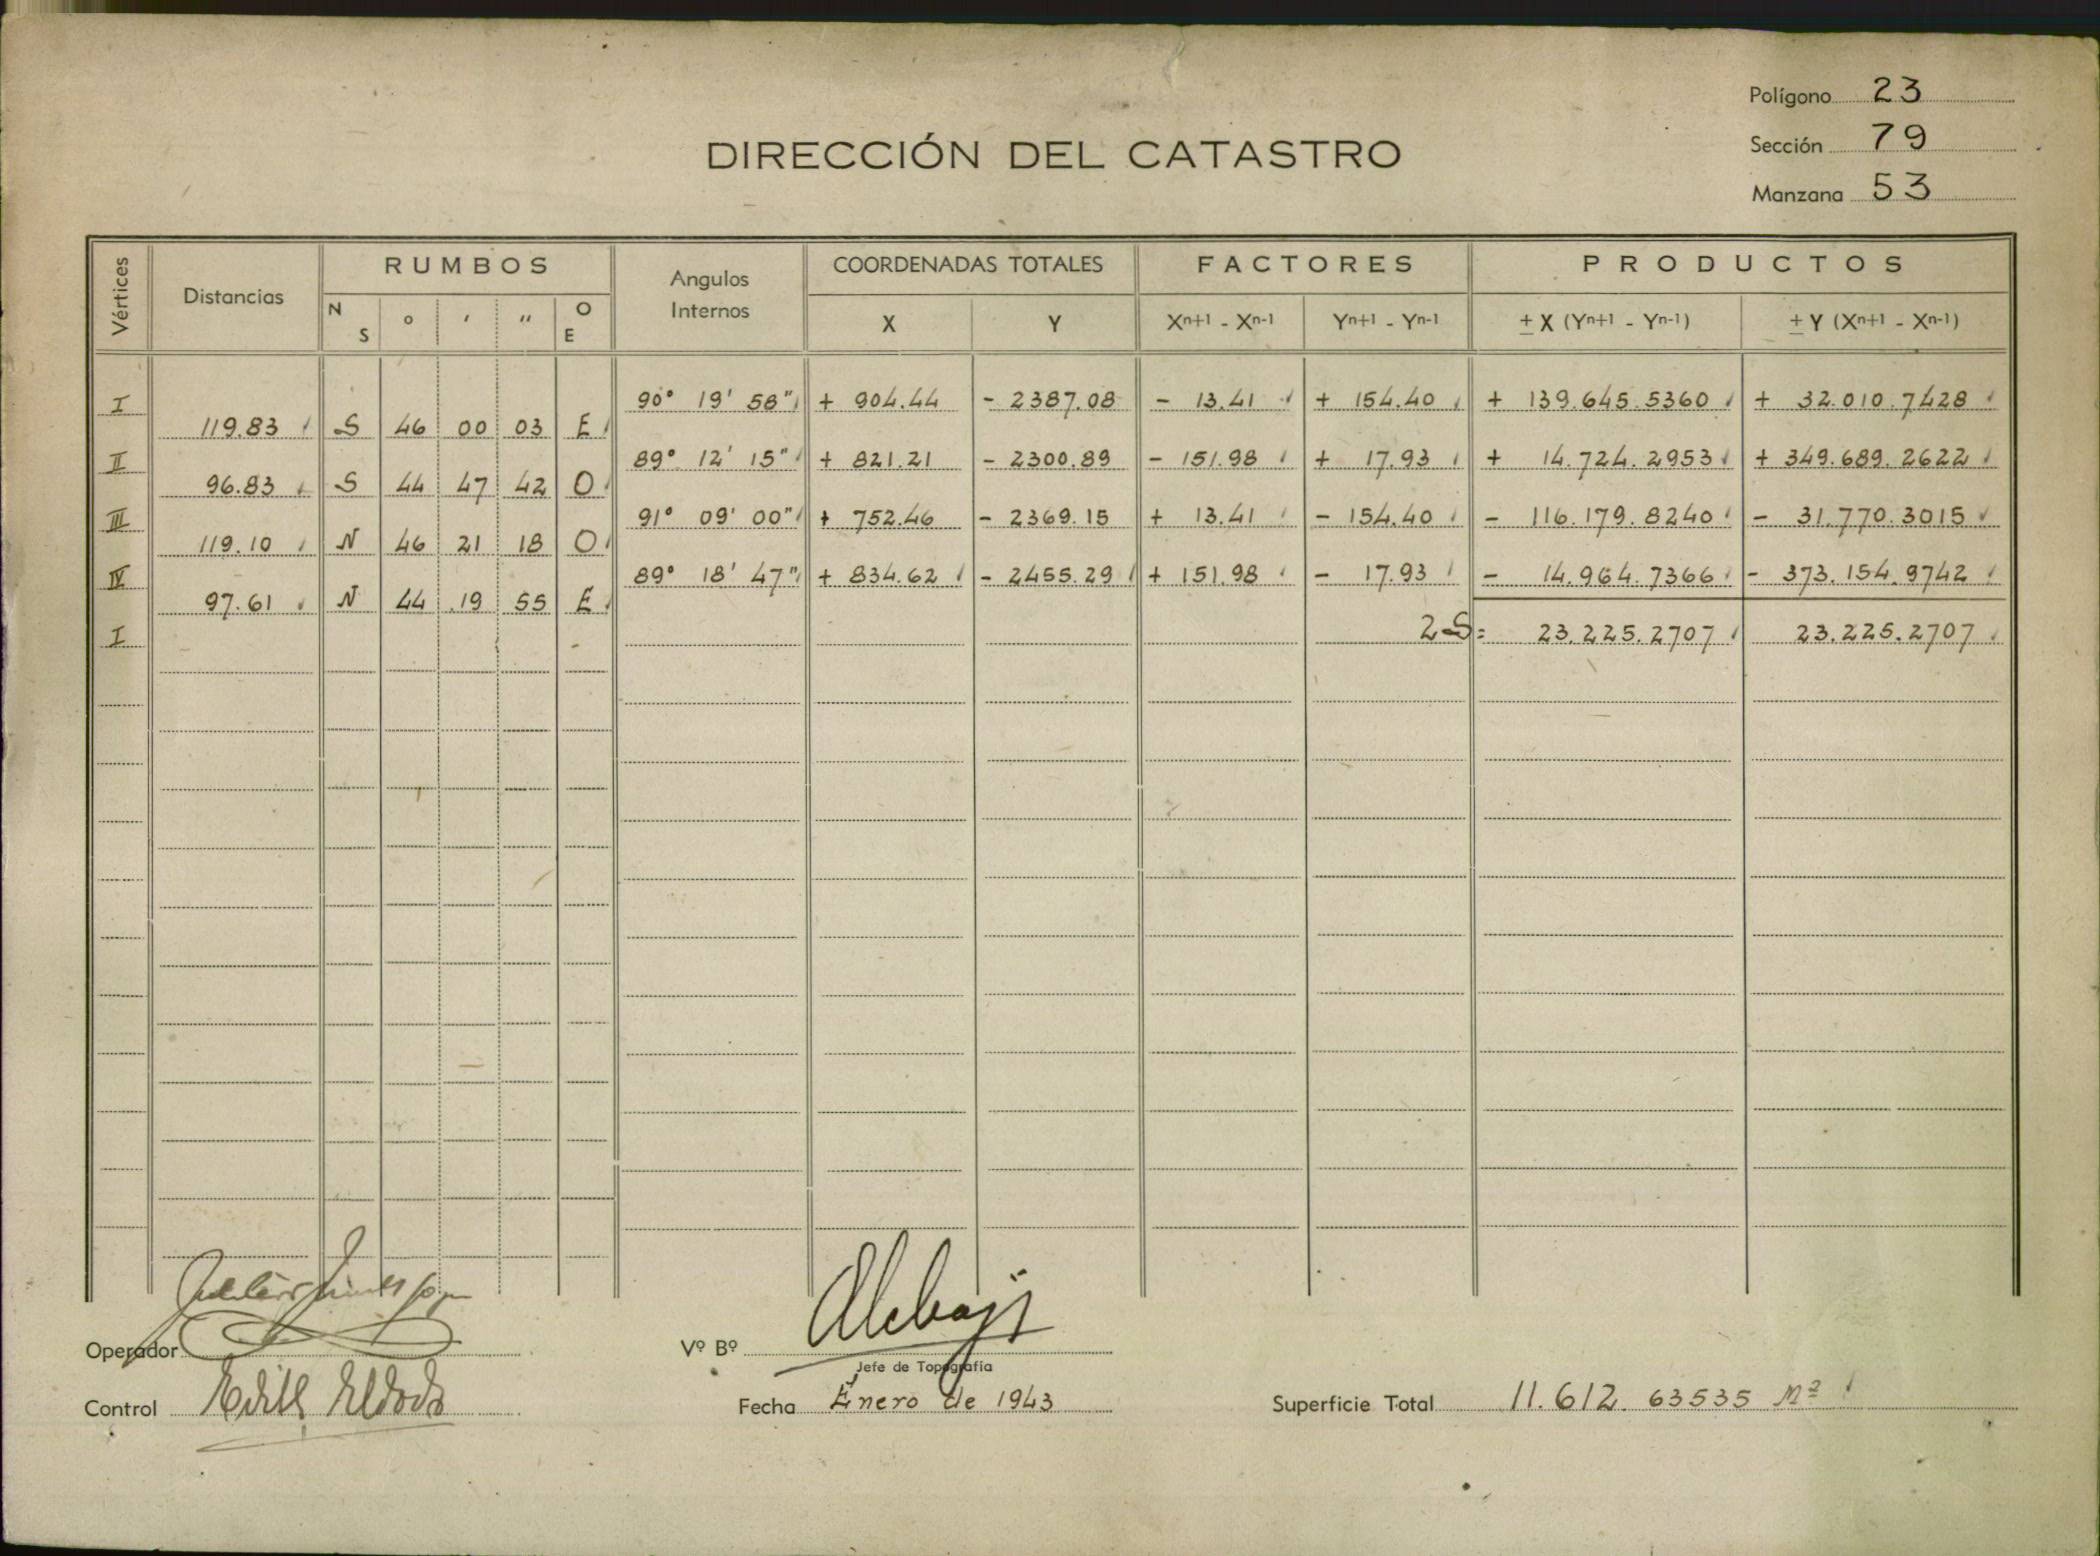 Polígono 23
DIRECCIÓN DEL CATASTRO
Sección 79
Manzana 53
Vértices Distancias RUMBOS Angulos Internos COORDENADAS TOTALES FACTORES PRODUCTOS
N S ° ' " O E X Y Xn+1 - Xn-1 Yn+1 - Yn-1 ± X (Yn+1 - Yn-1) ± Y (Xn+1 - Xn-1)
I 90° 19' 58" + 904.44 - 2387.08 - 13.41 + 154.40 + 139.645.5360 + 32.010.7428
119.83 S 46 00 03 E
II 89° 12' 15" + 821.21 - 2300.89 - 151.98 + 17.93 + 14.724.2953 + 349.689.2622
96.83 S 44 47 42 O
III 91° 09' 00" + 752.46 - 2369.15 + 13.41 - 154.40 - 116.179.8240 - 31.770.3015
119.10 N 46 21 18 O
IV 89° 18' 47" + 834.62 - 2455.29 + 151.98 - 17.93 - 14.964.7366 - 373.154.9742
97.61 N 44 19 55 E
I 2S= 23.225.2707 23.225.2707
Operador
Vº Bº
Jefe de Topografía
Control
Fecha Enero de 1943
Superficie Total 11.612.63535 M²